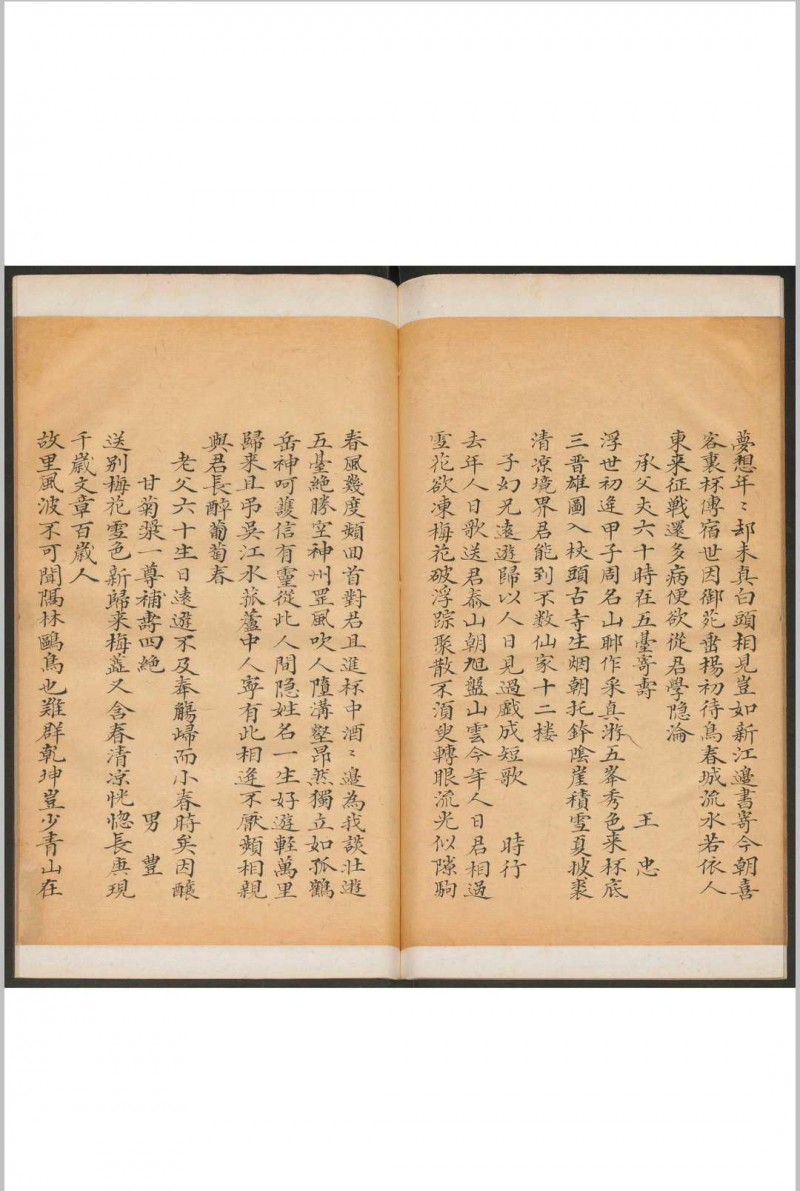 夢想年〻却未真白頭相見豈如新江邊書寄今朝喜
客裏杯傳宿世因御苑垂楊初待鳥春城流水若依人
東来征戰還多病便欲從君學隐淪
承父夫六十時在五臺寄壽 王忠
浮世初逢甲子周名山聊作采真游五峯秀色来杯底
三晋雄圖入杖頭古寺生烟朝托鉢陰崖積雪夏披裘
清凉境界君能到不数仙家十二楼
子幻兄遠遊歸以人日見過戲成短歌 時行
去年人日歌送君泰山朝旭盤山雲今年人日君相過
雪花欲凍梅花破浮踪聚散不須臾轉眼流光似隙駒
春風幾度頻回首對君且進杯中酒〻邊為我談壯遊
五臺絶勝空神州罡風吹人墮溝壑昂然獨立如孤鶴
岳神呵護信有靈從此人間隐姓名一生好遊輕萬里
歸来且弔吳江水菰蘆中人寧有此相逢不厭頻相親
與君長醉葡萄春
老父六十生日遠遊不及奉觴歸而小春時矣因釀
甘菊漿一尊補壽四絶 男豊
送别梅花雪色新歸来梅蕋又含春清凉恍惚長庚現
千歲文章百歲人
故里風波不可聞隔林鷗鳥也難群乾坤豈少青山在